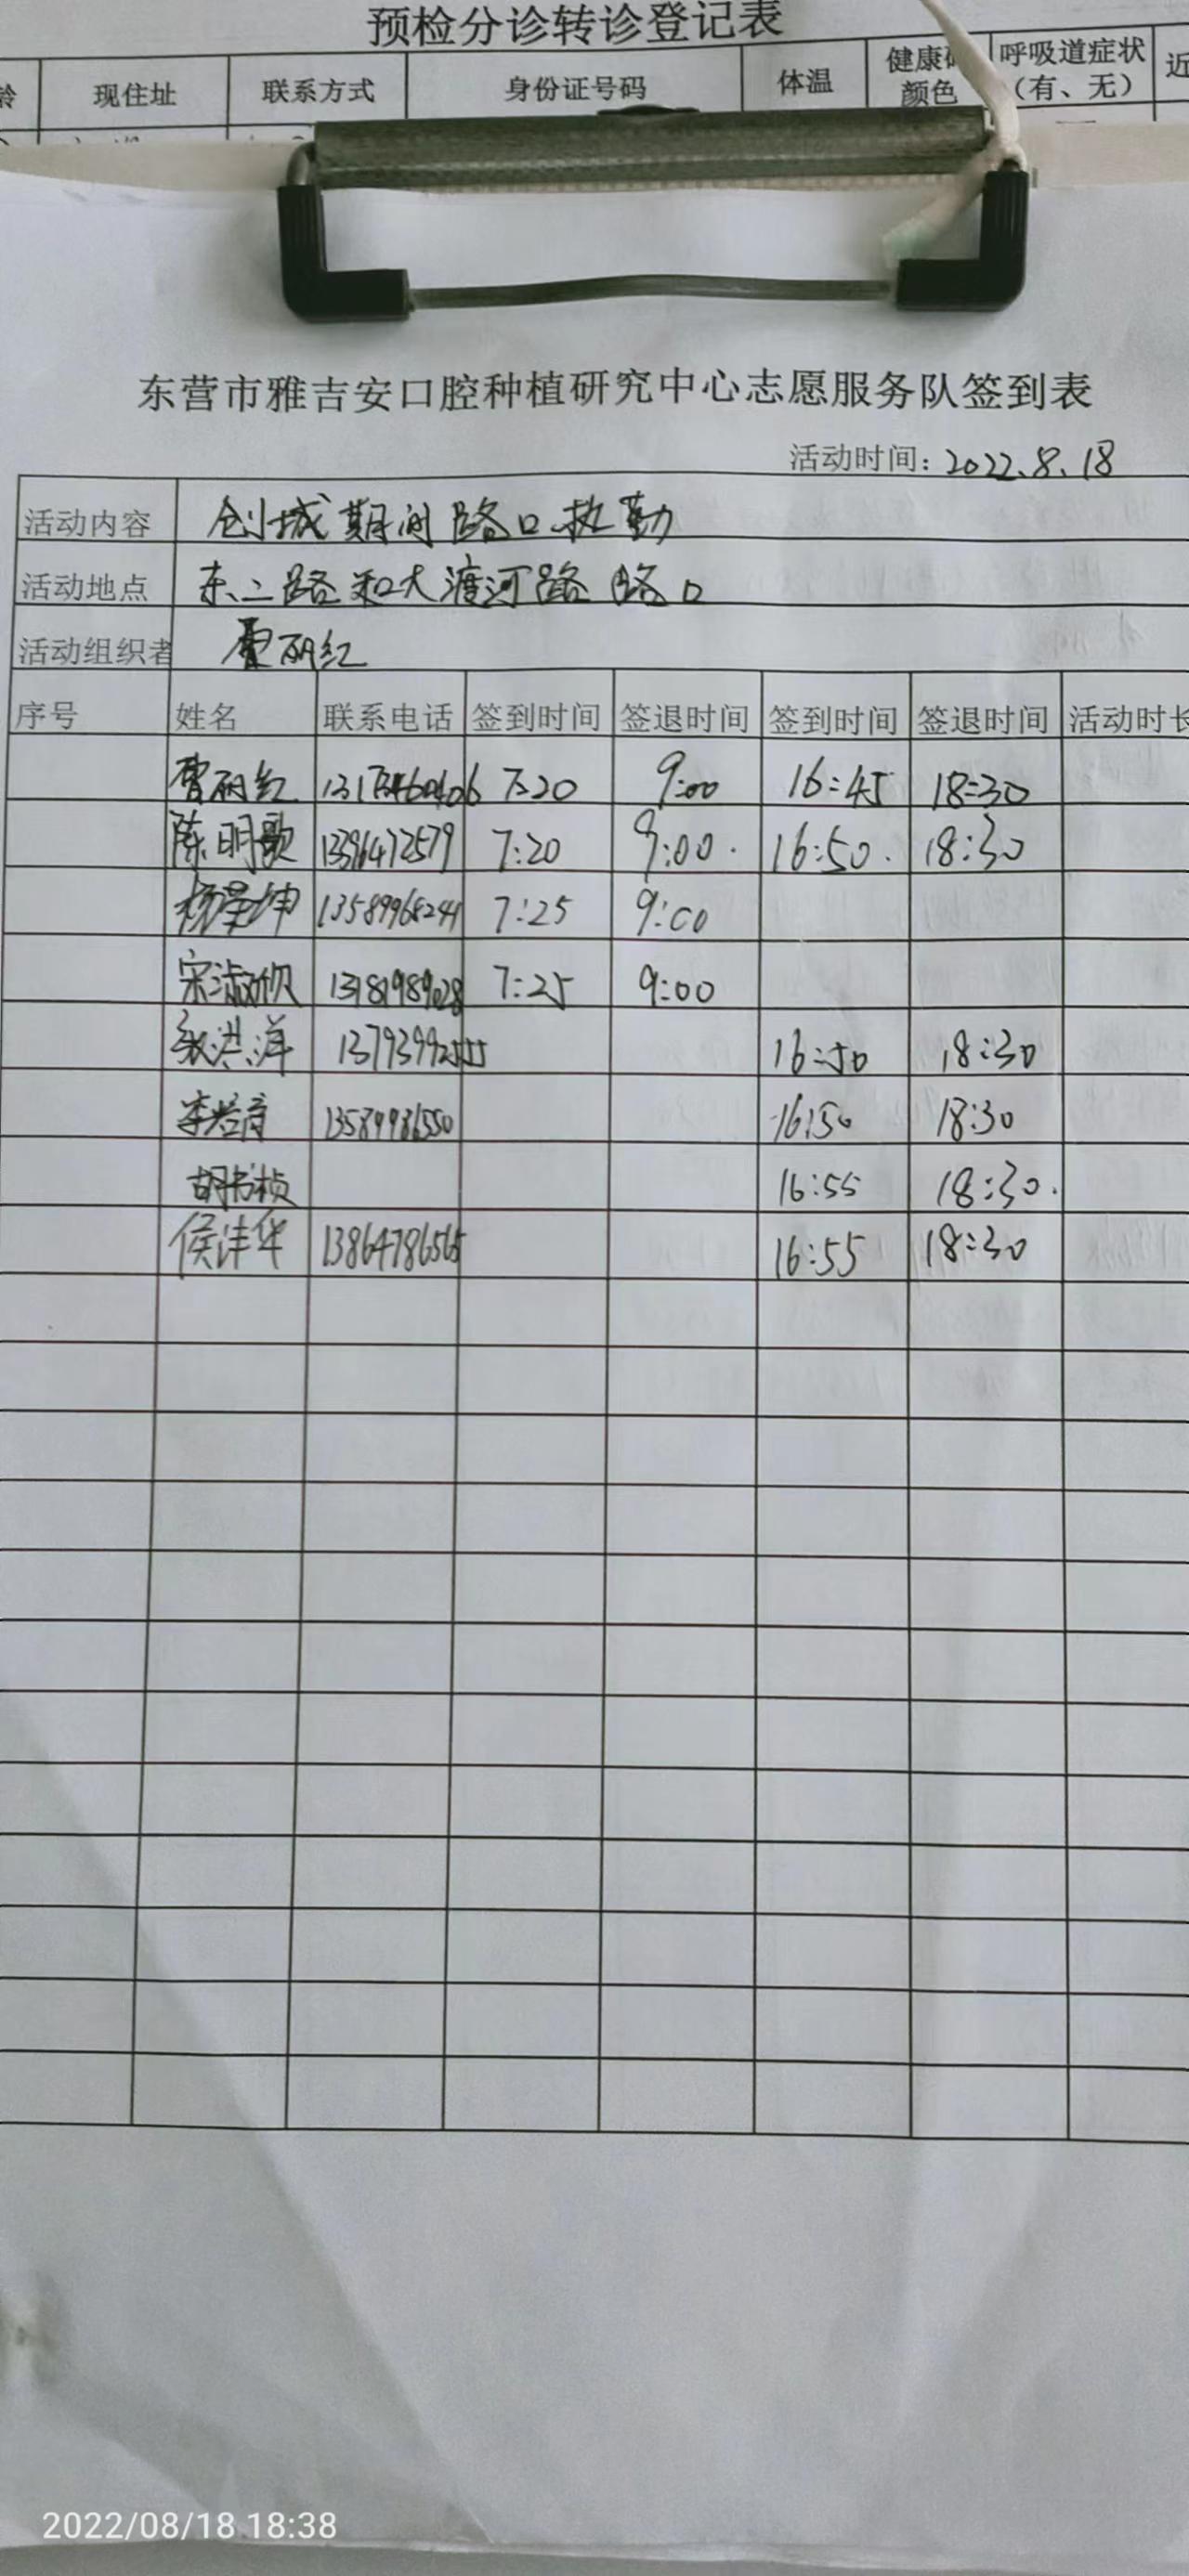 预检分诊转诊登记表
龄 现住址 联系方式 身份证号码 体温 健康 颜色 呼吸道症状（有、无） 近
东营市雅吉安口腔种植研究中心志愿服务队签到表
活动时间：2022.8.18
活动内容 创城期间路口执勤
活动地点 东二路和大渡河路路口
活动组织者 曹丽红
序号 姓名 联系电话 签到时间 签退时间 签到时间 签退时间 活动时长
曹丽红 7:20 9:00 16:45 18:30
陈明歌 1396472579 7:20 9:00. 16:50. 18:30
杨荣坤 13589968241 7:25 9:00
宋淑欣 7:25 9:00
洪洋 13793992555 16:50 18:30
李 13589986550 16:50 18:30
胡书桢 16:55 18:30.
侯沣华 13864786565 16:55 18:30
2022/08/18 18:38